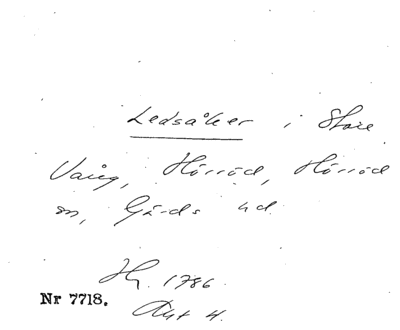 Ledsåker i Store
Vång, Hörröd, Hörröd
sn, Gärds hd.
Hy. 1786
Akt 4.
Nr 7718.